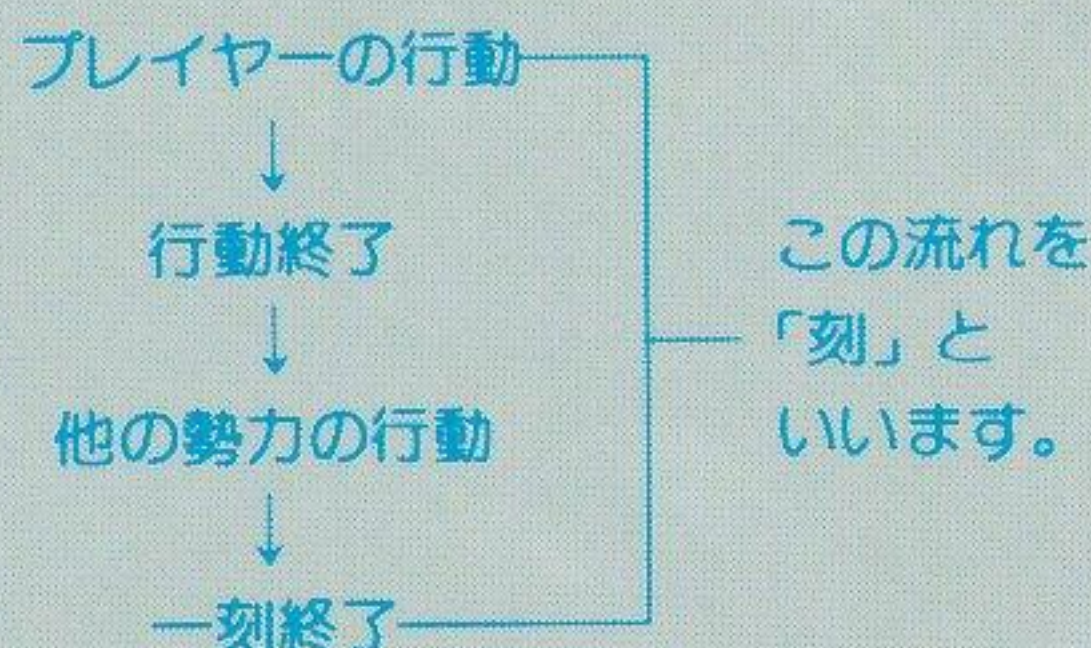 プレイヤーの行動
↓
行動終了
↓
他の勢力の行動
↓
一刻終了
この流れを
「刻」と
いいます。